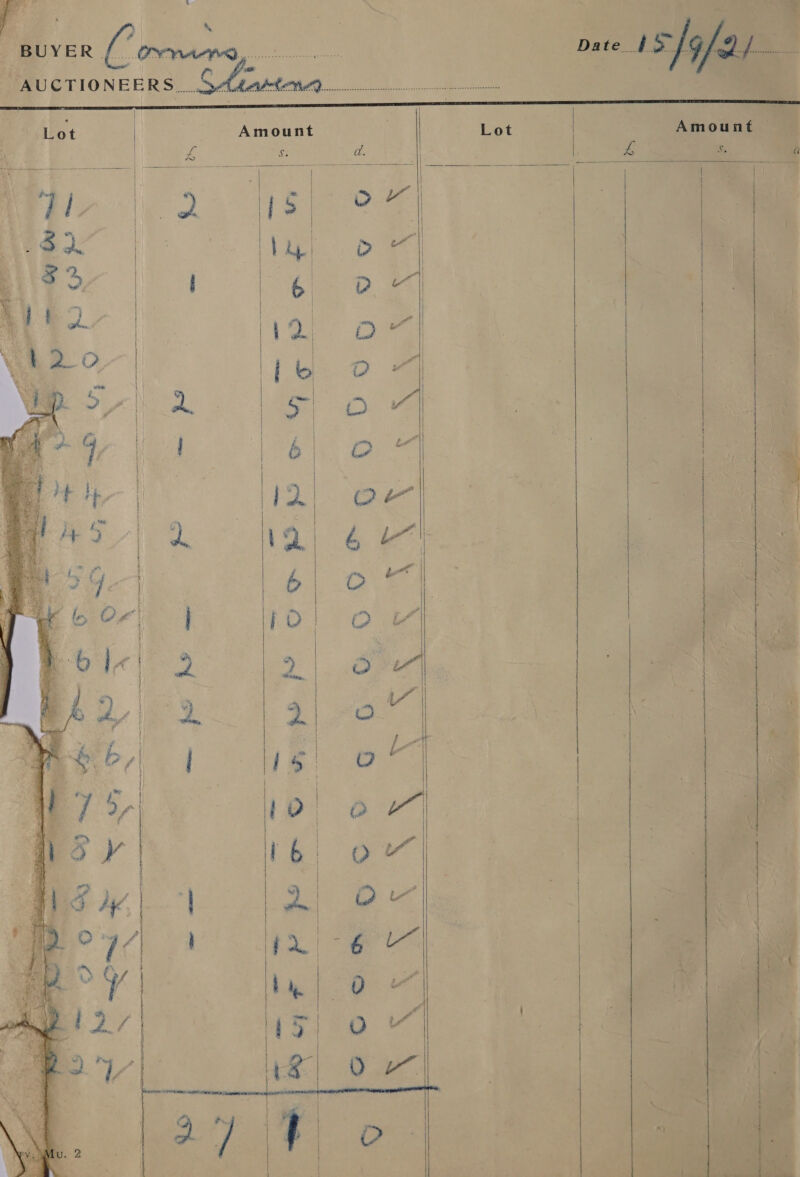 BUYER Corning Date 15/9/21
AUCTIONEERS
Lot Amount Lot Amount
£ s. d. £ s. d
71 2 15 0 ✓
82 14 0 ✓
83 1 6 0 ✓
112 12 0 ✓
120 16 0 ✓
125 2 5 0 ✓
129 1 6 0 ✓
144 12 0 ✓
145 2 12 6 ✓
159 6 0 ✓
160 1 10 0 ✓
161 2 2 0 ✓
162 2 2 0 ✓
166 1 15 0 ✓
175 10 0 ✓
16 0 ✓
184 1 2 0 ✓
207 1 12 6 ✓
209 14 0 ✓
212 15 0 ✓
227 18 0 ✓
27 1 0
Mu. 2